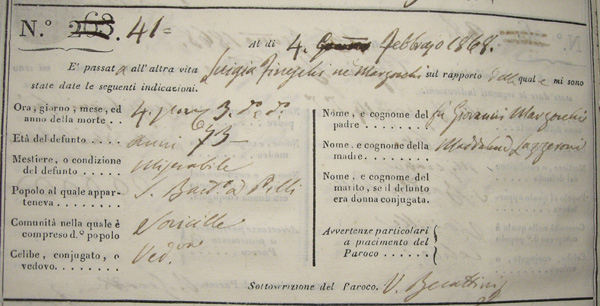 N.º 41=
Al dì 4. Febbrajo 1868.
E' passata all'altra vita Luigia Fineschi ne' Margocchi sul rapporto d alla qual e mi sono
state date le seguenti indicazioni.
Ora, giorno, mese, ed
anno della morte . . 4. 3. d.º d.º
Età del defunto . . anni 73
Mestiere, o condizione
del defunto . . . Miserabile
Popolo al quale appar-
teneva . . . . . S. Bart.º a Pilli
Comunità nella quale è
compreso d.º popolo Sovicille
Celibe, conjugato, o
vedovo. . . . . . Ved.
Nome, e cognome del
padre . . . . . fu Giovanni Margocchi
Nome, e cognome della
madre. . . . . . Maddalena Lazzeroni
Nome, e cognome del
marito, se il defunto
era donna conjugata.
Avvertenze particolari
a piacimento del
Paroco . . . . .
Sottoscrizione del Paroco. V. Becattini